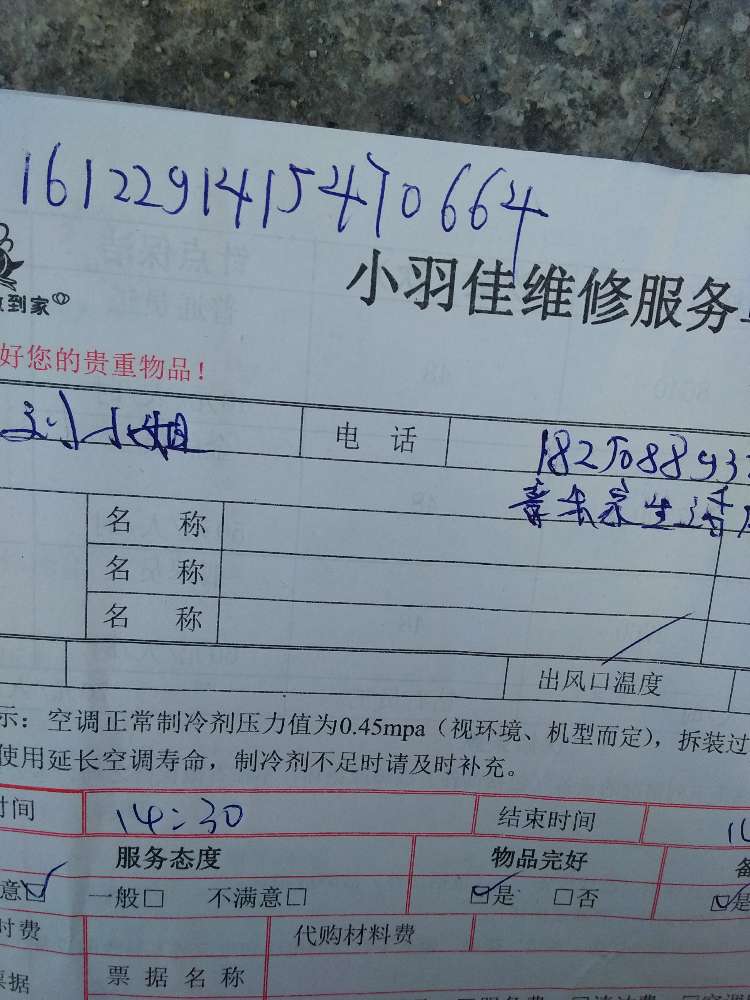 1612291415470664
小羽佳维修服务
到家
好您的贵重物品！
刘小姐 电话 182508893
名称
名称
名称
出风口温度
示：空调正常制冷剂压力值为0.45mpa（视环境、机型而定），拆装过
使用延长空调寿命，制冷剂不足时请及时补充。
时间 14:30 结束时间 1
服务态度 物品完好 备
意☑ 一般□ 不满意□ ☑是 □否 ☑是
时费 代购材料费
票据 票据名称